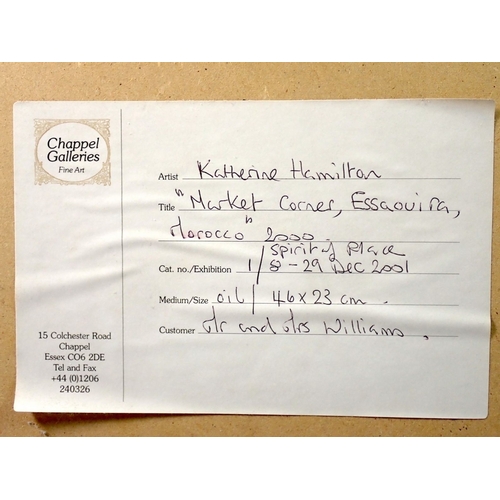 Chappel
Galleries
Fine Art
Artist Katherine Hamilton
Title "Market Corner, Essaouira,
Morocco" 2000.
Cat. no./Exhibition 1/ Spirit of Place
8-29 Dec 2001
Medium/Size oil / 46 x 23 cm.
Customer Mr and Mrs Williams.
15 Colchester Road
Chappel
Essex CO6 2DE
Tel and Fax
+44 (0)1206
240326